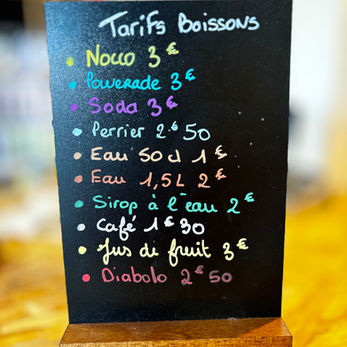 Tarifs Boissons
• Nocco 3€
• Powerade 3€
• Soda 3€
• Perrier 2€50
• Eau 50cl 1€
• Eau 1,5L 2€
• Sirop à l'eau 2€
• Café 1€30
• Jus di fruit 3€
• Diabolo 2€50